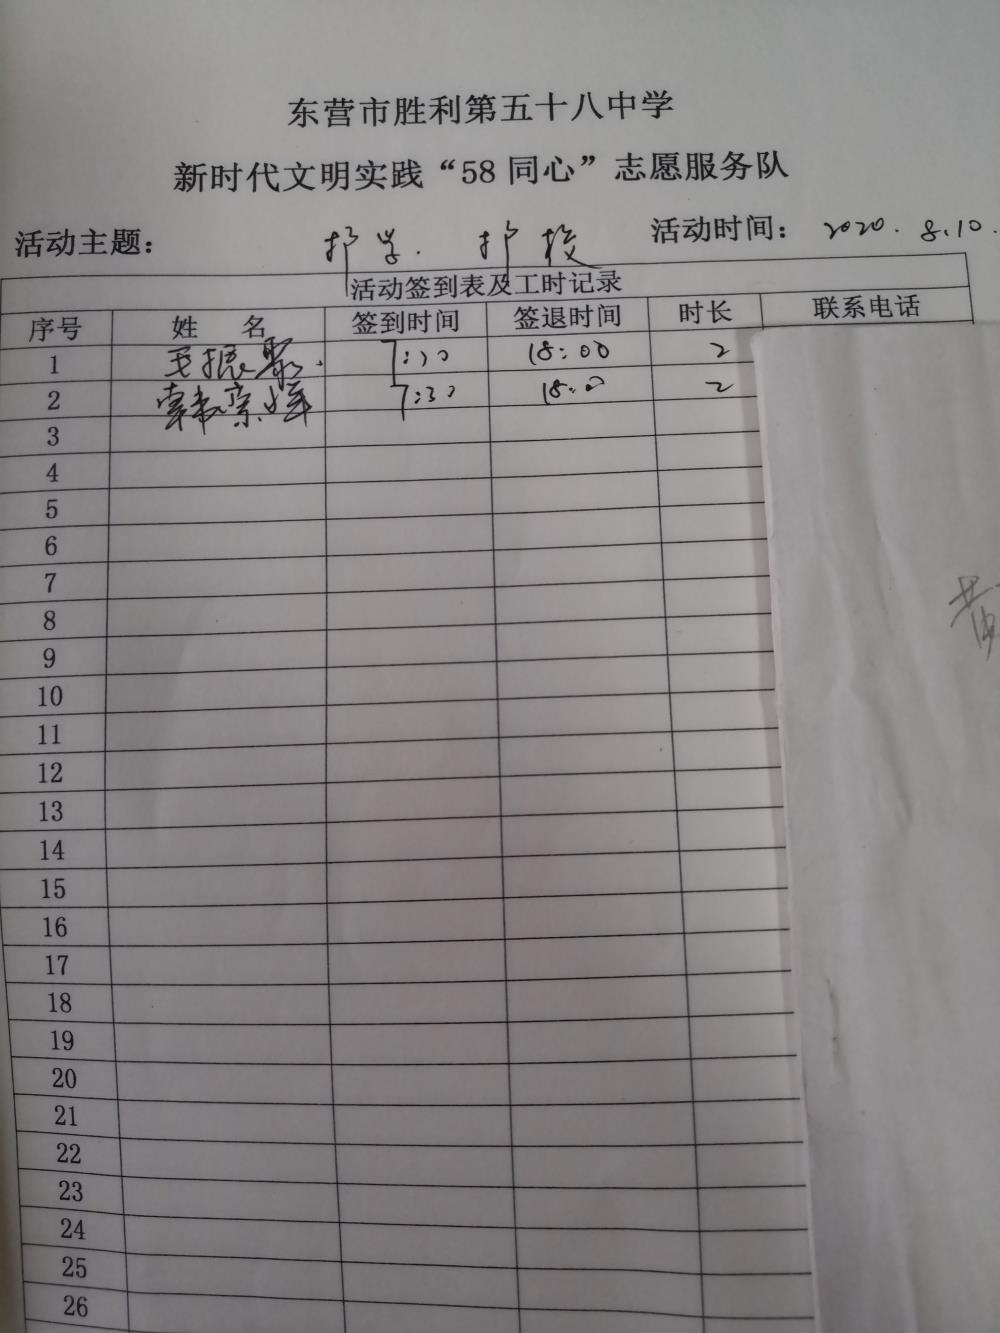 东营市胜利第五十八中学
新时代文明实践“58同心”志愿服务队
活动主题： 护学. 护校 活动时间： 2020.8.10.
活动签到表及工时记录
序号 姓 名 签到时间 签退时间 时长 联系电话
1 王振聚 7:30 18:00 2
2 7:30 18:00 2
3
4
5
6
7
8
9
10
11
12
13
14
15
16
17
18
19
20
21
22
23
24
25
26